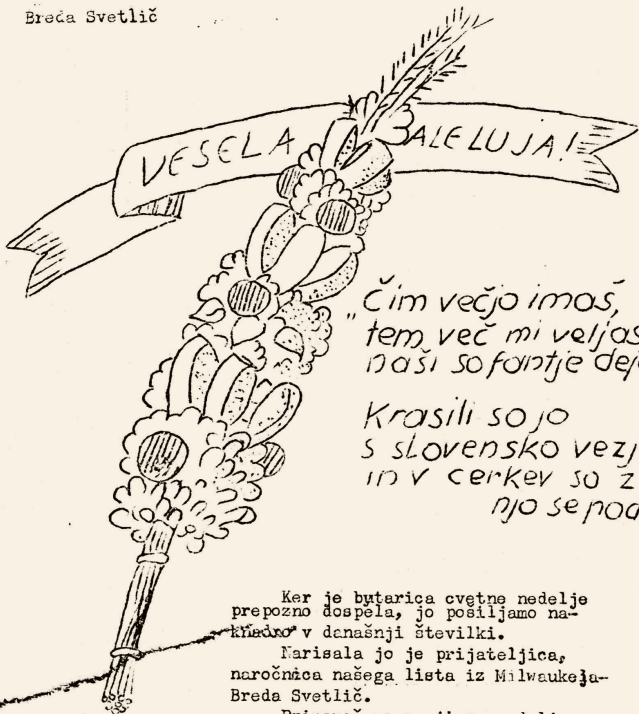 Breda Svetlič
VESELA ALELUJA!
„Čim večjo imaš,
tem več mi veljaš
naši so fantje
Krasili so jo
s slovensko
in v cerkev so z
njo se
Ker je butarica cvetne nedelje
prepozno dospela, jo pošiljamo na-
knadno v današnji številki.
Narisala jo je prijateljica,
naročnica našega lista iz Milwaukeja-
Breda Svetlič.